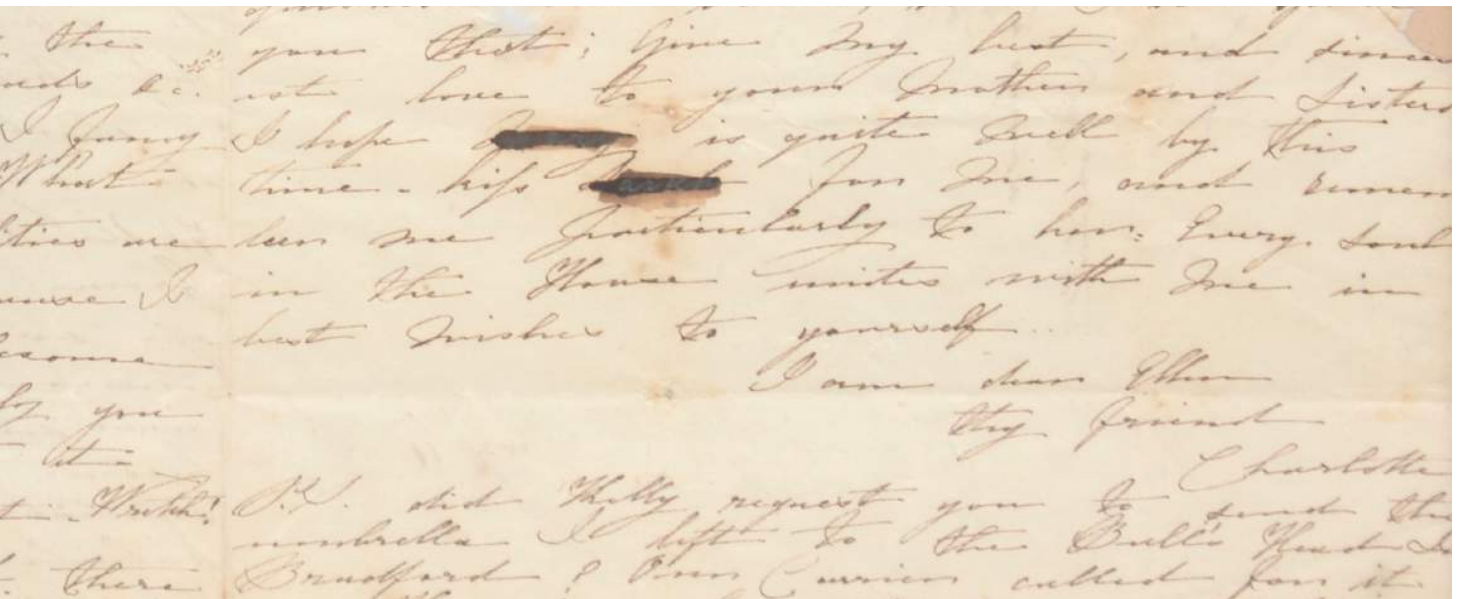 the
&c.
I fancy
What
ities are
I
esome
you
it
Wretch!
there
you that; Give my best, and sincer
est love to your Mother and Sisters
I hope is quite well by this
time - kiss for me, and remem
ber me particularly to her: Every soul
in the House unites with me in
best wishes to yourself..
I am dear Ellen
thy friend
Charlotte
P.S. did request you to send the
umbrella I left to the Bull's Head
Bradford? Our Carrier called for it